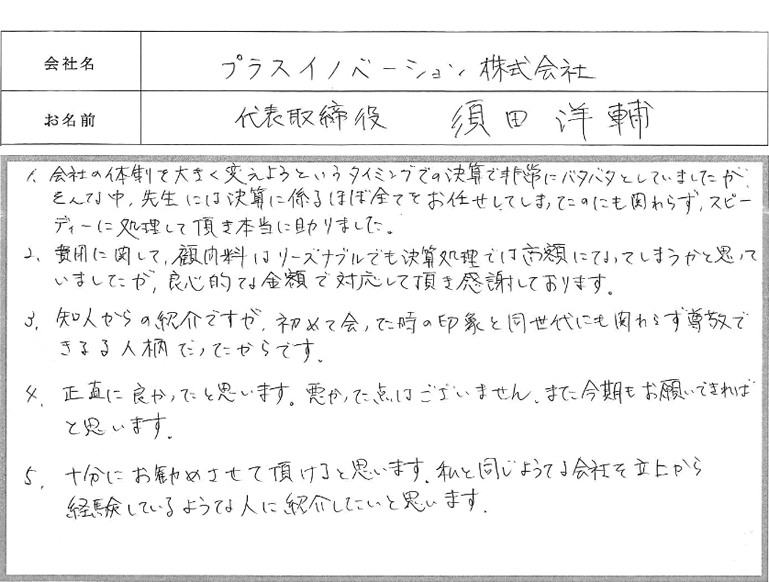 会社名 プラスイノベーション株式会社
お名前 代表取締役 須田洋輔
1. 会社の体制を大きく変えようというタイミングでの決算で非常にバタバタとしていましたが、
そんな中、先生には決算に係るほぼ全てをお任せしてしまったのにも関わらず、スピー
ディーに処理して頂き本当に助りました。
2. 費用に関して、顧問料はリーズナブルでも決算処理では高額になってしまうかと思って
いましたが、良心的な金額で対応して頂き感謝しております。
3. 知人からの紹介ですが、初めて会った時の印象と同世代にも関わらず尊敬で
きるる人柄だったからです。
4. 正直に良かったと思います。悪かった点はございません。また今期もお願いできれば
と思います。
5. 十分にお勧めさせて頂けると思います。私と同じような会社を立上から
経験しているような人に紹介したいと思います。